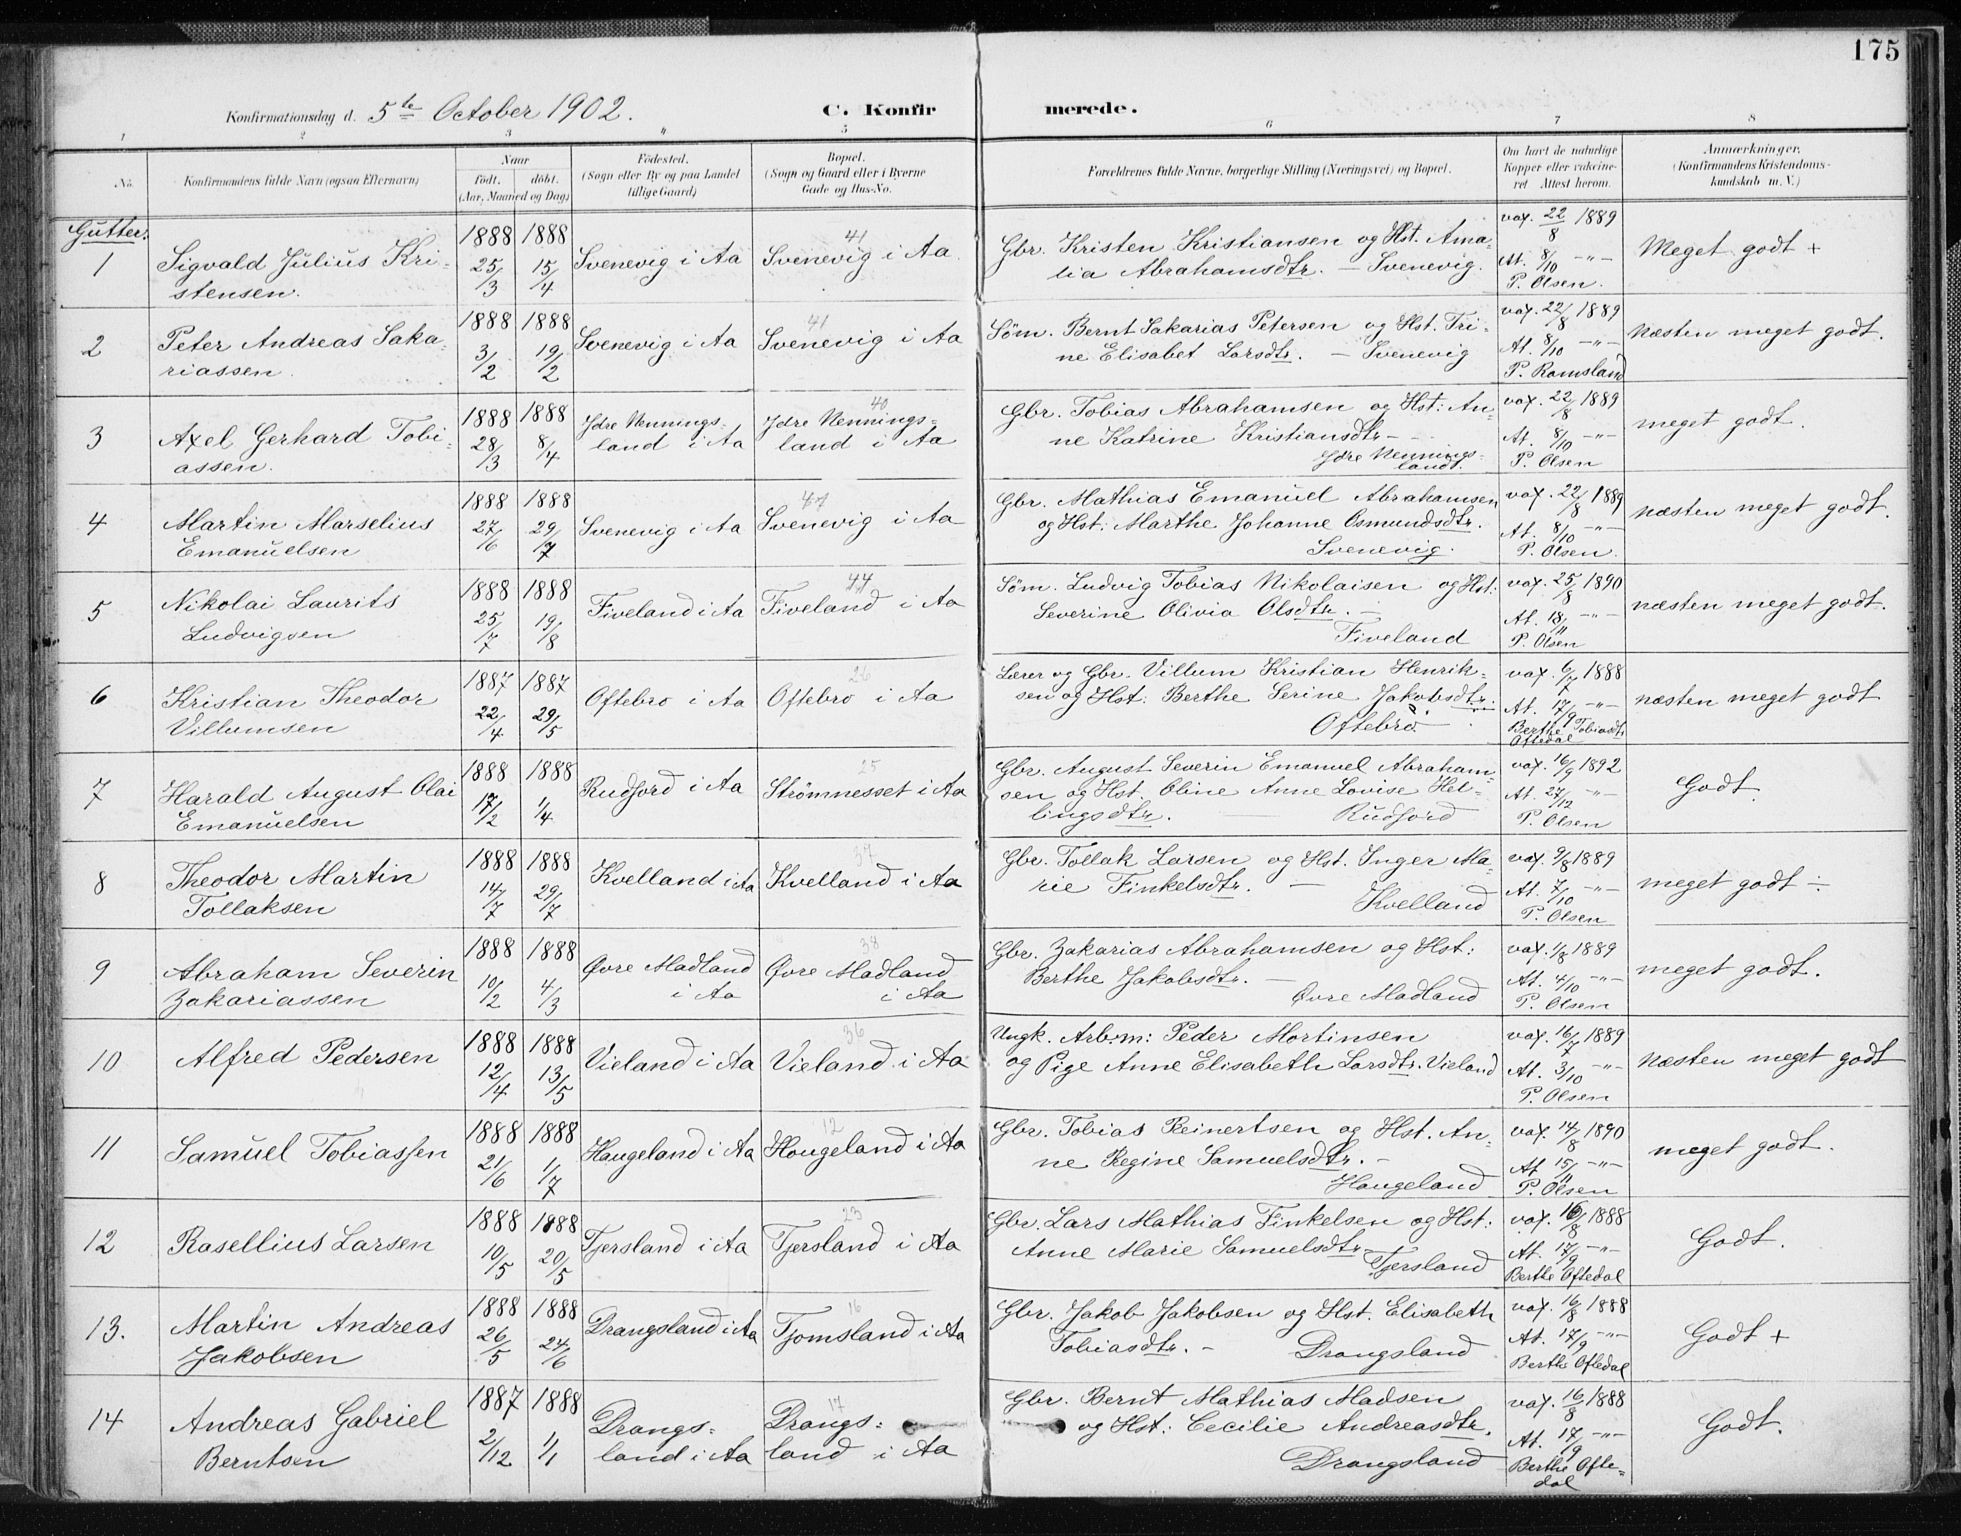 175
Konfirmationsdag d. 5te October 1902. C. Konfirmerede.
1 2 3 4 5 6 7 8
No. Konfirmandens fulde Navn (ogsaa Efternavn) Naar født, døbt. (Aar, Maaned og Dag) Fødested. (Sogn eller By og paa Landet tillige Gaard) Bopæl. (Sogn og Gaard eller i Byerne Gade og Hus-No. Forældrenes fulde Navne, borgerlige Stilling (Næringsvei) og Bopæl. Om havt de naturlige Kopper eller vakcineret Attest herom. Anmærkninger. (Konfirmandens Kristendomskundskab m. V.)
Gutter.
1 Sigvald Julius Kri-stensen. 1888 25/3 1888 15/4 Svenevig i Aa 41 Svenevig i Aa. Gbr. Kristen Kristiansen og Hst. Ama-lia Abrahamsdtr. — Svenevig. vax. 22/8 1889 At. 8/10 -"- P. Olsen. Meget godt +
2 Peter Andreas Saka-riassen. 1888 3/2 1888 19/2 Svenevig i Aa 41 Svenevig i Aa Søm. Bernt Sakarias Petersen og Hst. Tri-ne Elisabet Larsdtr. — Svenevig vax. 22/8 1889 At. 8/10 -"- P. Ramsland næsten meget godt.
3 Axel Gerhard Tobi-assen. 1888 28/3 1888 8/4 Ydre Nennings-land i Aa 40 Ydre Nennings=land i Aa Gbr. Tobias Abrahamsen og Hst: An-ne Katrine Kristiansdtr — Ydre Nennings-landt. vax. 22/8 1889 At. 8/10 -"- P. Olsen meget godt.
4 Martin Marselius Emanuelsen 1888 27/6 1888 29/7 Svenevig i Aa 47 Svenevig i Aa Gbr. Mathias Emanuel Abrahamsen og Hst: Marthe Johanne Osmundsdtr. Svenevig. vax. 22/8 1889 At. 8/10 -"- P. Olsen. næsten meget godt.
5 Nikolai Laurits Ludvigsen 1888 25/7 1888 19/8 Fiveland i Aa 44 Fiveland i Aa Søm. Ludvig Tobias Nikolaisen og Hst: Severine Olivia Olsdtr. — Fiveland vax. 25/8 1890 At. 18/11 -"- P. Olsen næsten meget godt.
6 Kristian Theodor Villumsen 1887 22/4 1887 29/5 Oftebro i Aa 26 Oftebro i Aa Lærer og Gbr. Villum Kristian Henrik-sen og Hst: Berthe Serine Jakobsdtr. Oftebro vax. 6/7 1888 At. 17/9 -"- Berthe Tobiasdtr Oftedal næsten meget godt
7 Harald August Olai Emanuelsen 1888 17/2 1888 1/4 Rudjord i Aa 25 Strømnesset i Aa Gbr. August Severin Emanuel Abraham-sen og Hst. Oline Anne Lovise Hel-lingsdtr. — Rudjord vax. 16/9 1892 At. 27/12 -"- P. Olsen Godt.
8 Theodor Martin Tollaksen 1888 14/7 1888 29/7 Kvelland i Aa 37 Kvelland i Aa Gbr. Tollak Larsen og Hst. Inger Ma-rie Finkelsdtr. — Kvelland vax. 9/8 1889 At. 7/10 -"- P. Olsen meget godt ÷
9 Abraham Severin Zakariassen 1888 10/2 1888 4/3 Øvre Madland i Aa 38 Øvre Madland i Aa Gbr. Zakarias Abrahamsen og Hst: Berthe Jakobsdtr. — Øvre Madland vax. 1/8 1889 At. 4/10 -"- P. Olsen meget godt.
10 Alfred Pedersen 1888 12/4 1888 13/5 Vieland i Aa 36 Vieland i Aa Ungk. Arbm: Peder Mortinsen og Pige Anne Elisabeth Larsdtr. Vieland vax. 16/7 1889 At. 3/10 -"- P. Olsen næsten meget godt
11 Samuel Tobiassen 1888 21/6 1888 1/7 Haugeland i Aa 12 Hougeland i Aa Gbr. Tobias Reinertsen og Hst. An-ne Regine Samuelsdtr. — Haugeland vax. 14/8 1890 At 15/11 -"- P. Olsen meget godt.
12 Rasellius Larsen 1888 10/5 1888 20/5 Tjersland i Aa 23 Tjersland i Aa Gbr. Lars Mathias Finkelsen og Hst: Anne Marie Samuelsdtr. Tjersland vax. 16/8 1888 At. 17/9 -"- Berthe Oftedal Godt.
13. Martin Andreas Jakobsen 1888 26/5 1888 24/6 Drangsland i Aa 16 Tjomsland i Aa Gbr. Jakob Jakobsen og Hst. Elisabeth Tobiasdtr. — Drangsland vax. 16/8 1888 At. 17/9 -"- Berthe Oftedal Godt +
14 Andreas Gabriel Berntsen 1887 2/12 1888 1/1 Drangs=land i Aa 17 Drangs=land i Aa Gbr. Bernt Mathias Madsen og Hst: Cecilie Andreasdtr. Drangsland vax. 16/8 1888 At. 17/9 -"- Berthe Ofte=dal Godt.